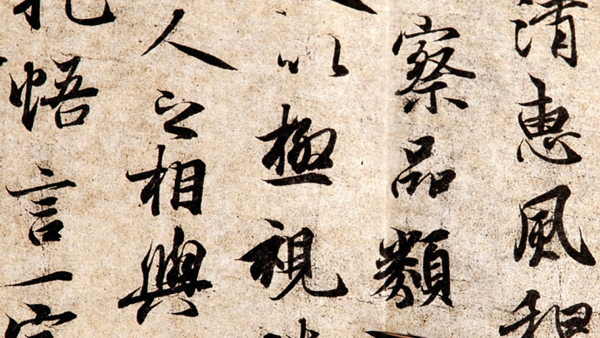 清惠風和
察品類
以極視
人之相與
抱悟言一室